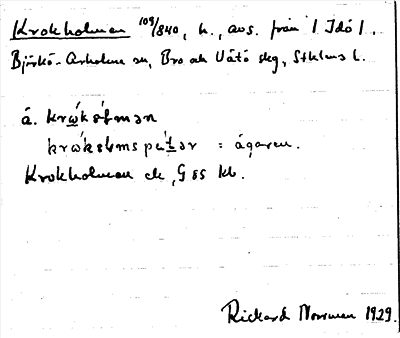 Krokholmen 109/840, h., avs. från 1 Idö 1,
Björkö-Arholma sn, Bro och Vätö skg, Sthlms l.
á. krώ̨kɵłmən
krώ̨kɵłmspętər = ägaren.
Krokholmen ek, G ss kb.
Rickard Norrman 1929.